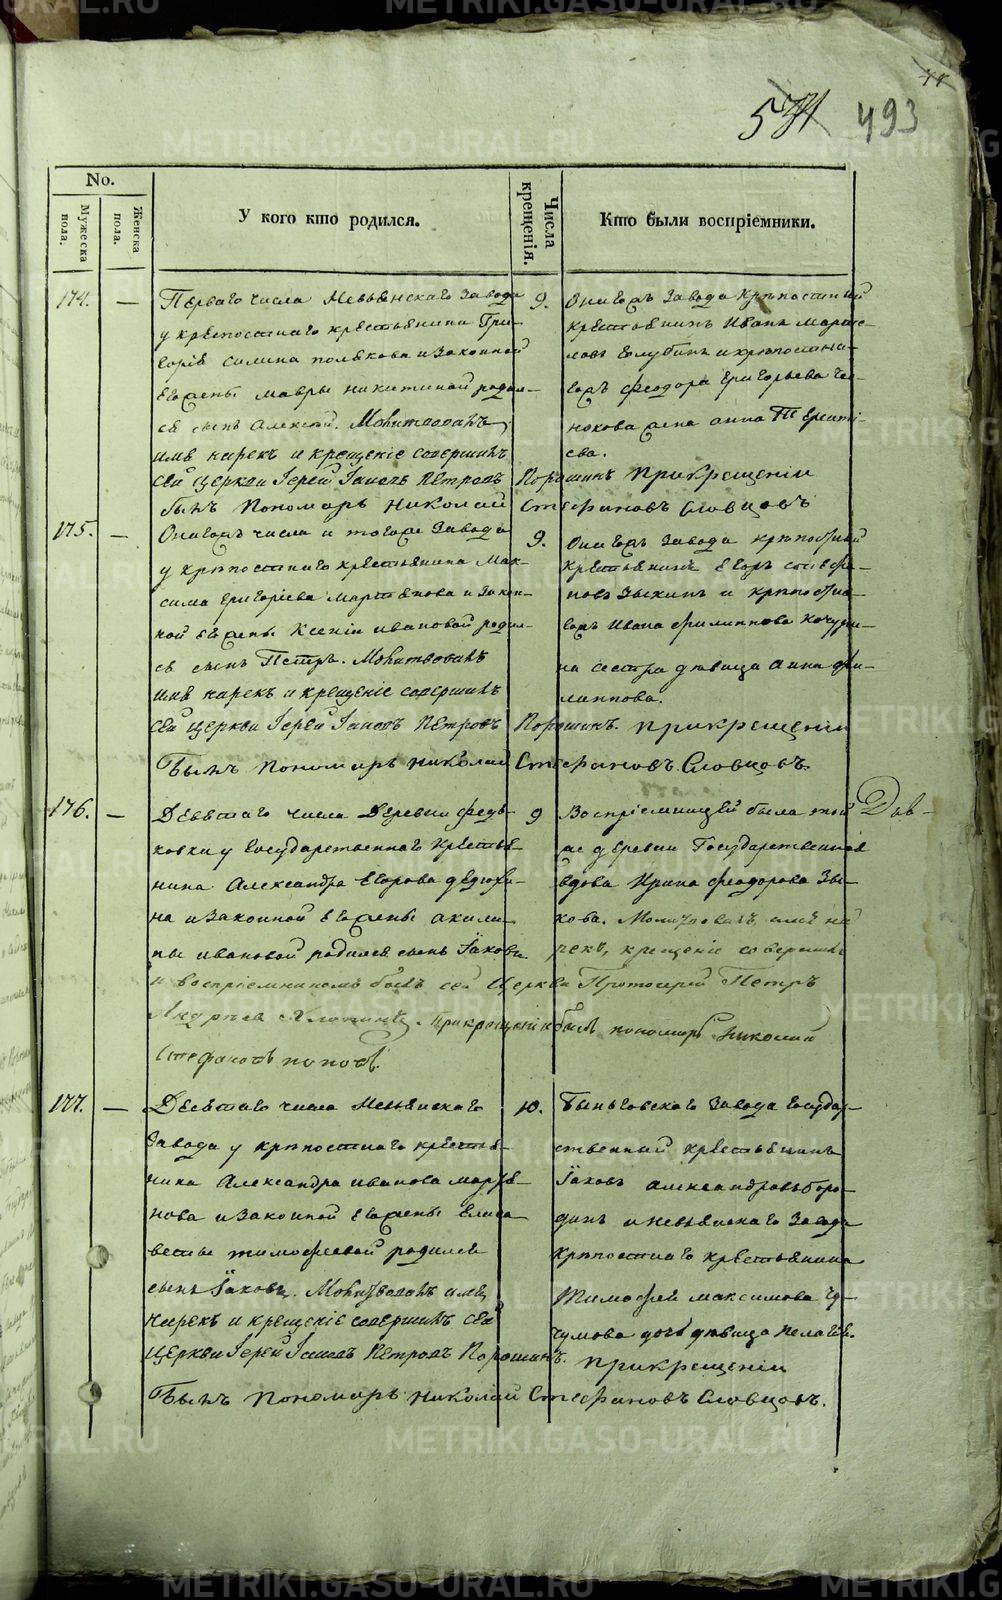 531 493
No.
Мужеска пола.
Женска пола.
У кого кто родился.
Числа крещенія.
Кто были воспріемники.
174. — Перваго числа Невьянскаго Завода
у крѣпостнаго крестьянина Гри-
горія Силина Полякова и законной
его жены Мавры Никитиной родил-
ся сынъ Алексѣй. Молитвовалъ,
имя нарекъ и крещеніе совершилъ
сей церкви Іерей Іаковъ Петровъ Порошинъ при крещеніи
былъ Пономарь Николай Стефановъ Словцовъ
9. Онагожъ завода крѣпостный
крестьянинъ Иванъ
Голубинъ и крѣпостна-
гожъ Феодора Григорьева Че-
нокова жена Анна Теренті-
ева.
175. — Онагожъ числа и тогоже завода
у крѣпостнаго крестьянина Мак-
сима Григоріева Мартьянова и закон-
ной его жены Ксеніи Ивановой родил-
ся сынъ Петръ. Молитвовалъ
имя нарекъ и крещеніе совершилъ
сей церкви Іерей Іаковъ Петровъ Порошинъ. при крещеніи
Былъ Пономарь Николай Стефановъ Словцовъ.
9. Онагожъ завода крѣпостный
крестьянинъ Егоръ
Зыкинъ и крѣпостна-
гожъ Ивана Филиппова Качури-
на сестра дѣвица Анна Фи-
липпова.
176. — Девятаго числа Деревни Федь-
ковки у Государственнаго крестья-
нина Александра Егорова Дедюхи-
на и законной его жены Акили-
ны Ивановой родился сынъ Іаковъ
и воспріемникомъ былъ сей Церкви Протоіерей Петръ
Андреевъ При крещеніи былъ пономарь Николай
Стефановъ Поповъ.
9 Воспріемницей была той
же деревни Государственная
вдова Ирина Феодорова Зы-
кова. Молитвовалъ, имя на
рекъ, крещеніе совершилъ
177. — Десятаго числа Невьянскаго
Завода у крѣпостнаго крестья-
нина Александра Иванова Мартья-
нова и законной его жены Елиса
веты Тимофеевой родился
сынъ Іаковъ. Молитвовалъ имя
нарекъ и крещеніе совершилъ сей
церкви Іерей Іаковъ Петровъ Порошинъ. при крещеніи
Былъ Пономарь Николай Стефановъ Словцовъ.
10. Быньговскаго Завода Государ-
ственный крестьянинъ
Іаковъ Александровъ Боро-
динъ и Невьянскаго Завода
крѣпостнаго крестьянина
Тимофея Максимова
дочь дѣвица Пелагея.
METRIKI.GASO-URAL.RU